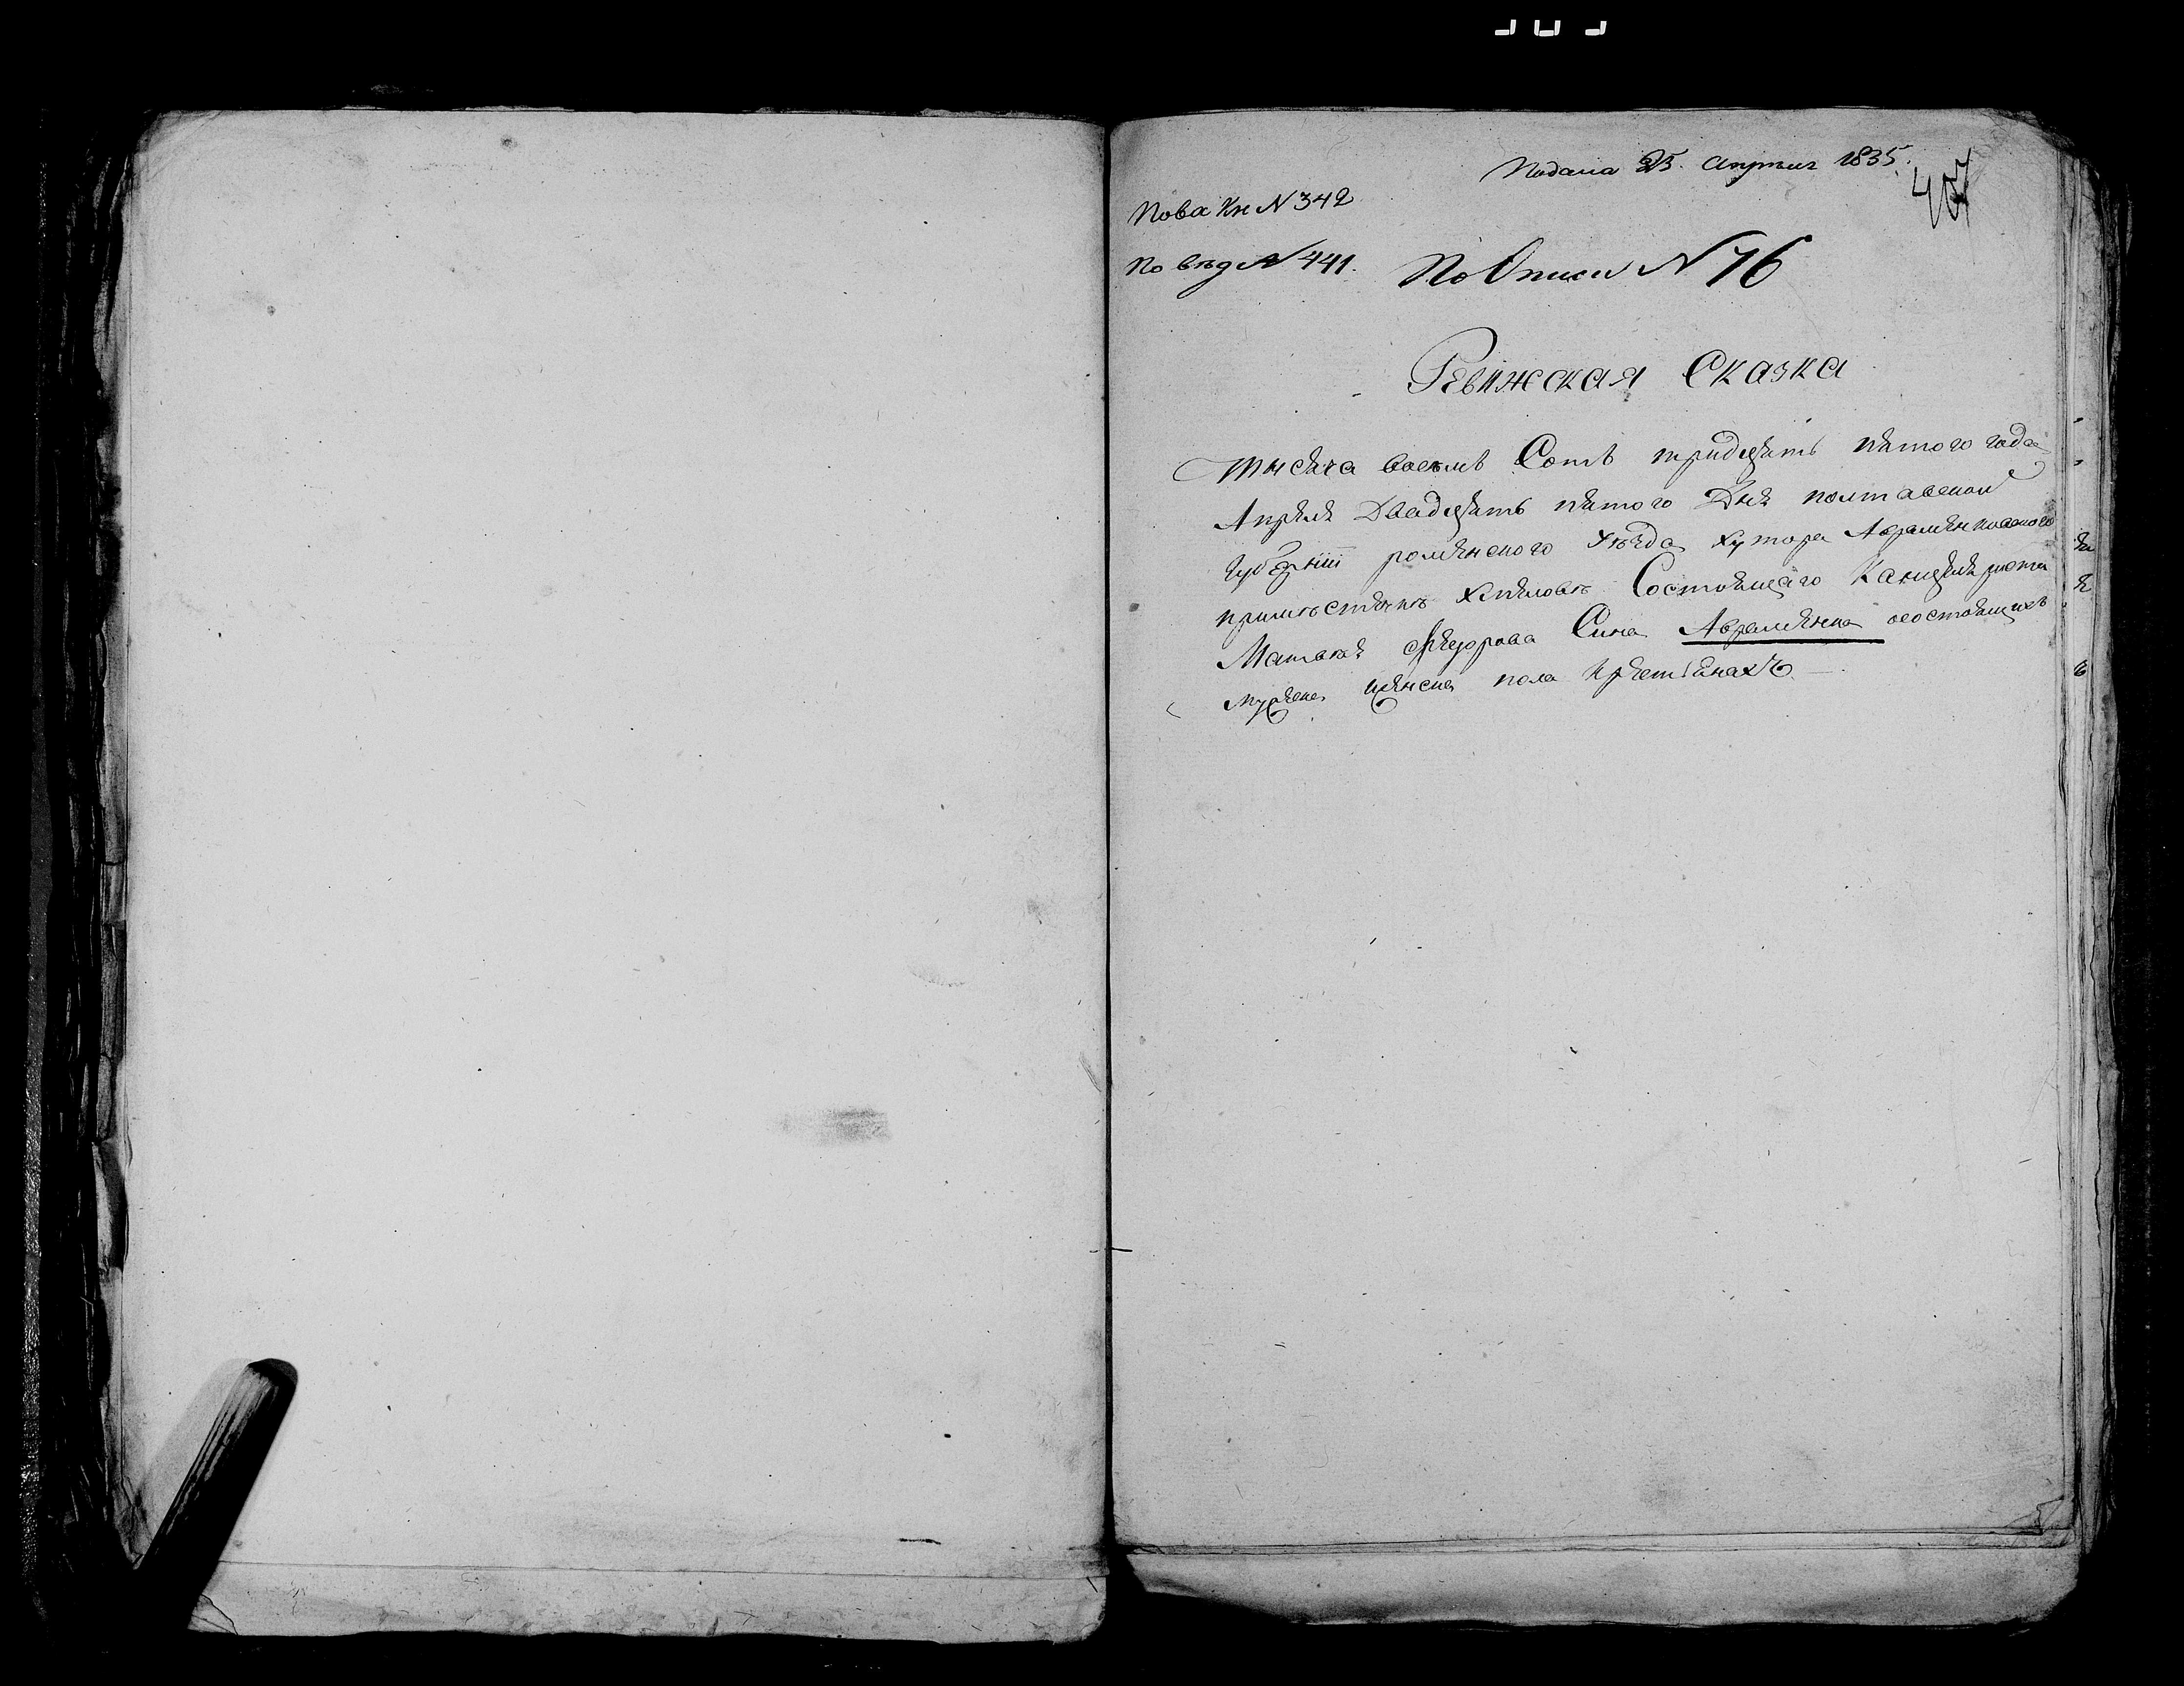 Подана 25. Апреля 1835.
407
Пова Кн N 342
По вед N 441.
По Описи N 76
Ревижская Сказка
Тысяча восемь Сотъ тридцять пятого года
Апреля Двадцять пятого Дня полтавской
губернии роменского уезда хутора Авраменковского
при местечке Состоящаго Канцеляриста
Матвея Федорова Сина Авраменка осостоящихъ
мужеска женска пола крестянахъ —